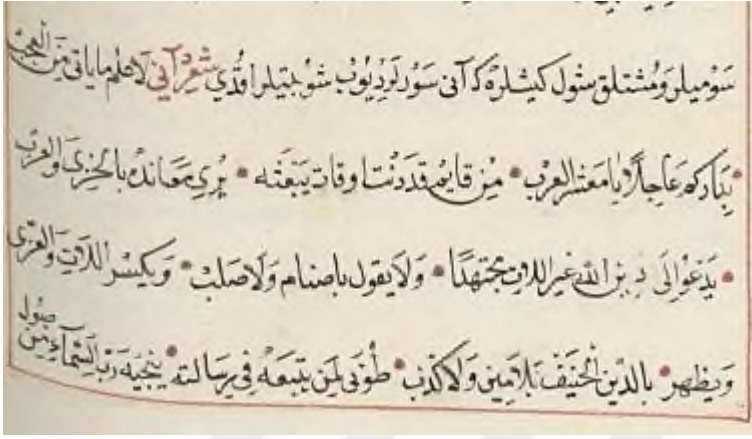 سَوْمیلر وَمُشتلق شول کیشلرَه که آنی سَوَرلَردِیُوبْ شوُ بیتیلر اوقُدي شعردر آنی لَاعلم مایاتی مِنَ العجبْ
یُبَادکم عَاجِلاً یامَعشر العربْ مِن قایمٍ قددنت اوقات یَبْعَثه یُرِي مَعَاندُه بالخزيَ والعربْ
یَدعُوْ اِلَی دِینِ اللّه غیر اللات مجتهدًا وَلَا یقول باصنام وَلَا صلبْ وَیکسر اللات والعزی
ویظهر بالدین الحنیف بلَا مین وَلَا کذب طُوبَی لمن یتبعهُ فی رسَالته ینجیه رب السّماء من صول